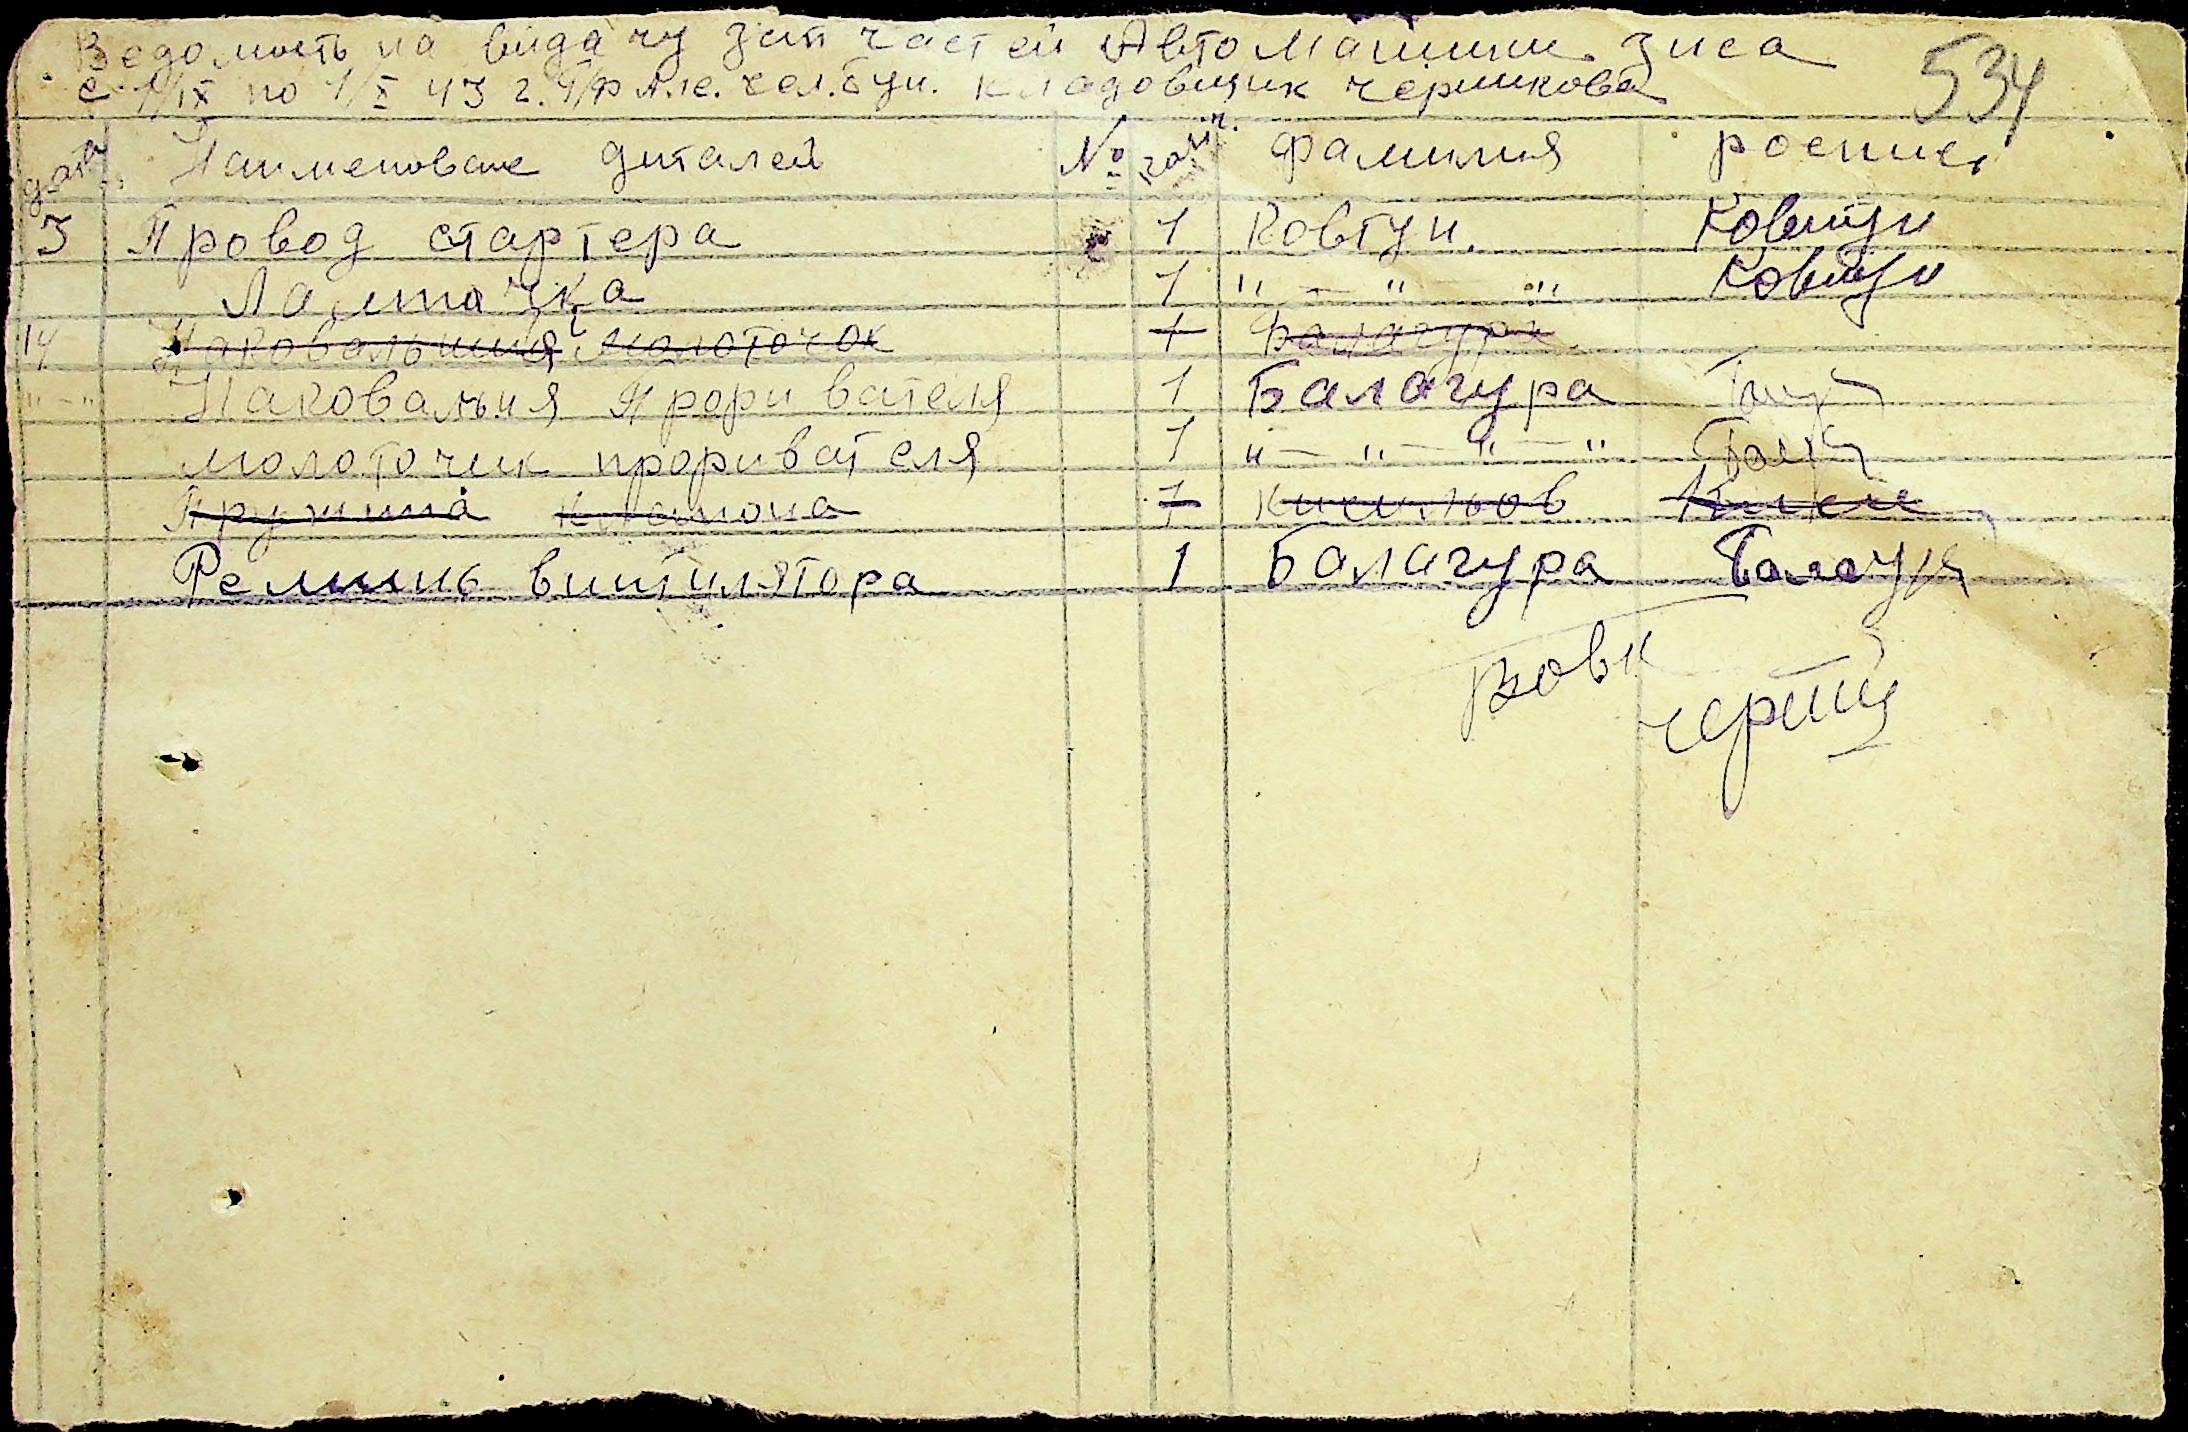 Ведомость на видачу зап частей Автомашини зиса
534
с 1/IX по 1/X 43 г. кладовщик черникова
дата Наименование диталей № колич. фамилия роспись
3 Провод стартера 1 Ковтун. Ковтун
Лампочка 1 " — " — " Ковтун
14 Наковальния молоточок 1 Балагура
" — " Наковальня Преривателя 1 Балагура
молоточик преривателя 1 " — " — " — "
Пружина клапона 1 Кисильов Кисел
Ремень винтилятора 1 Балагура Балагура
Вовк